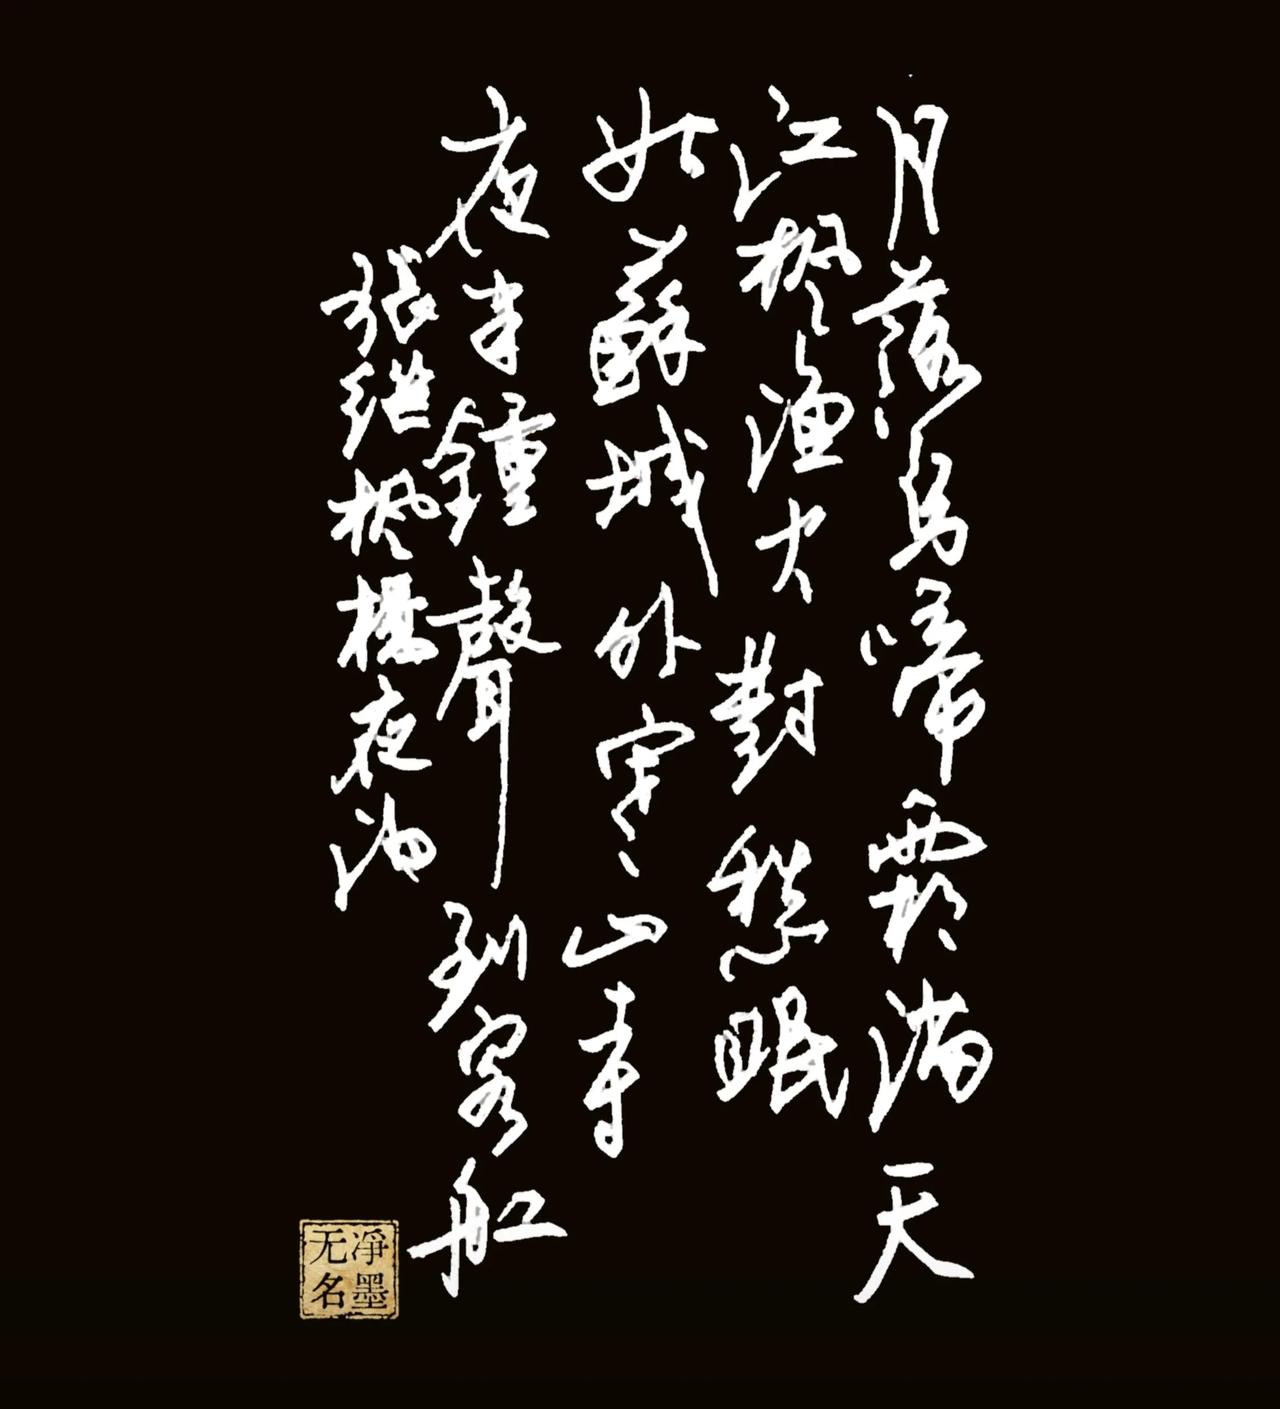 月落烏啼霜滿天
江枫渔火對愁眠
姑蘇城外寒山寺
夜半鐘聲到客船
張继枫橋夜泊
净墨无名